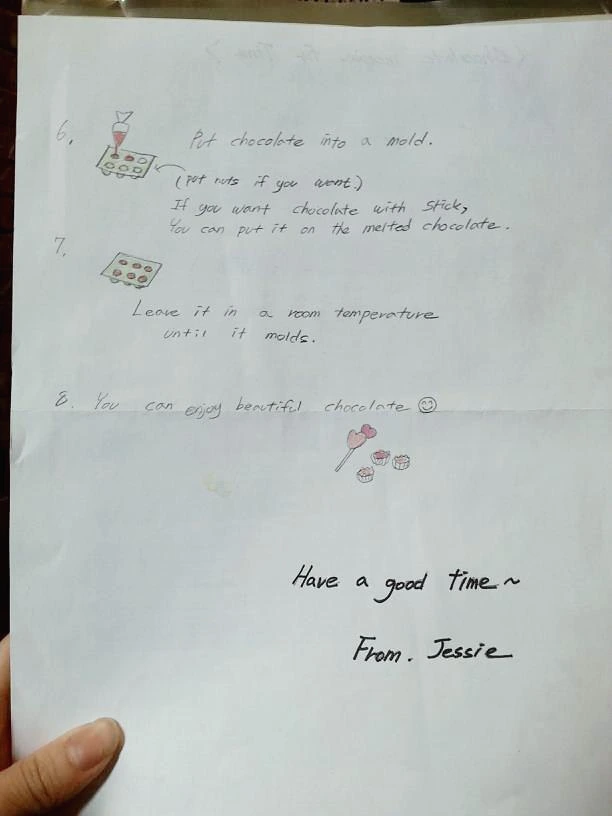 6. Put chocolate into a mold.
(put nuts if you want.)
If you want chocolate with stick,
You can put it on the melted chocolate.
7.
Leave it in a room temperature
until it molds.
8. You can enjoy beautiful chocolate ☺
Have a good time~
From. Jessie